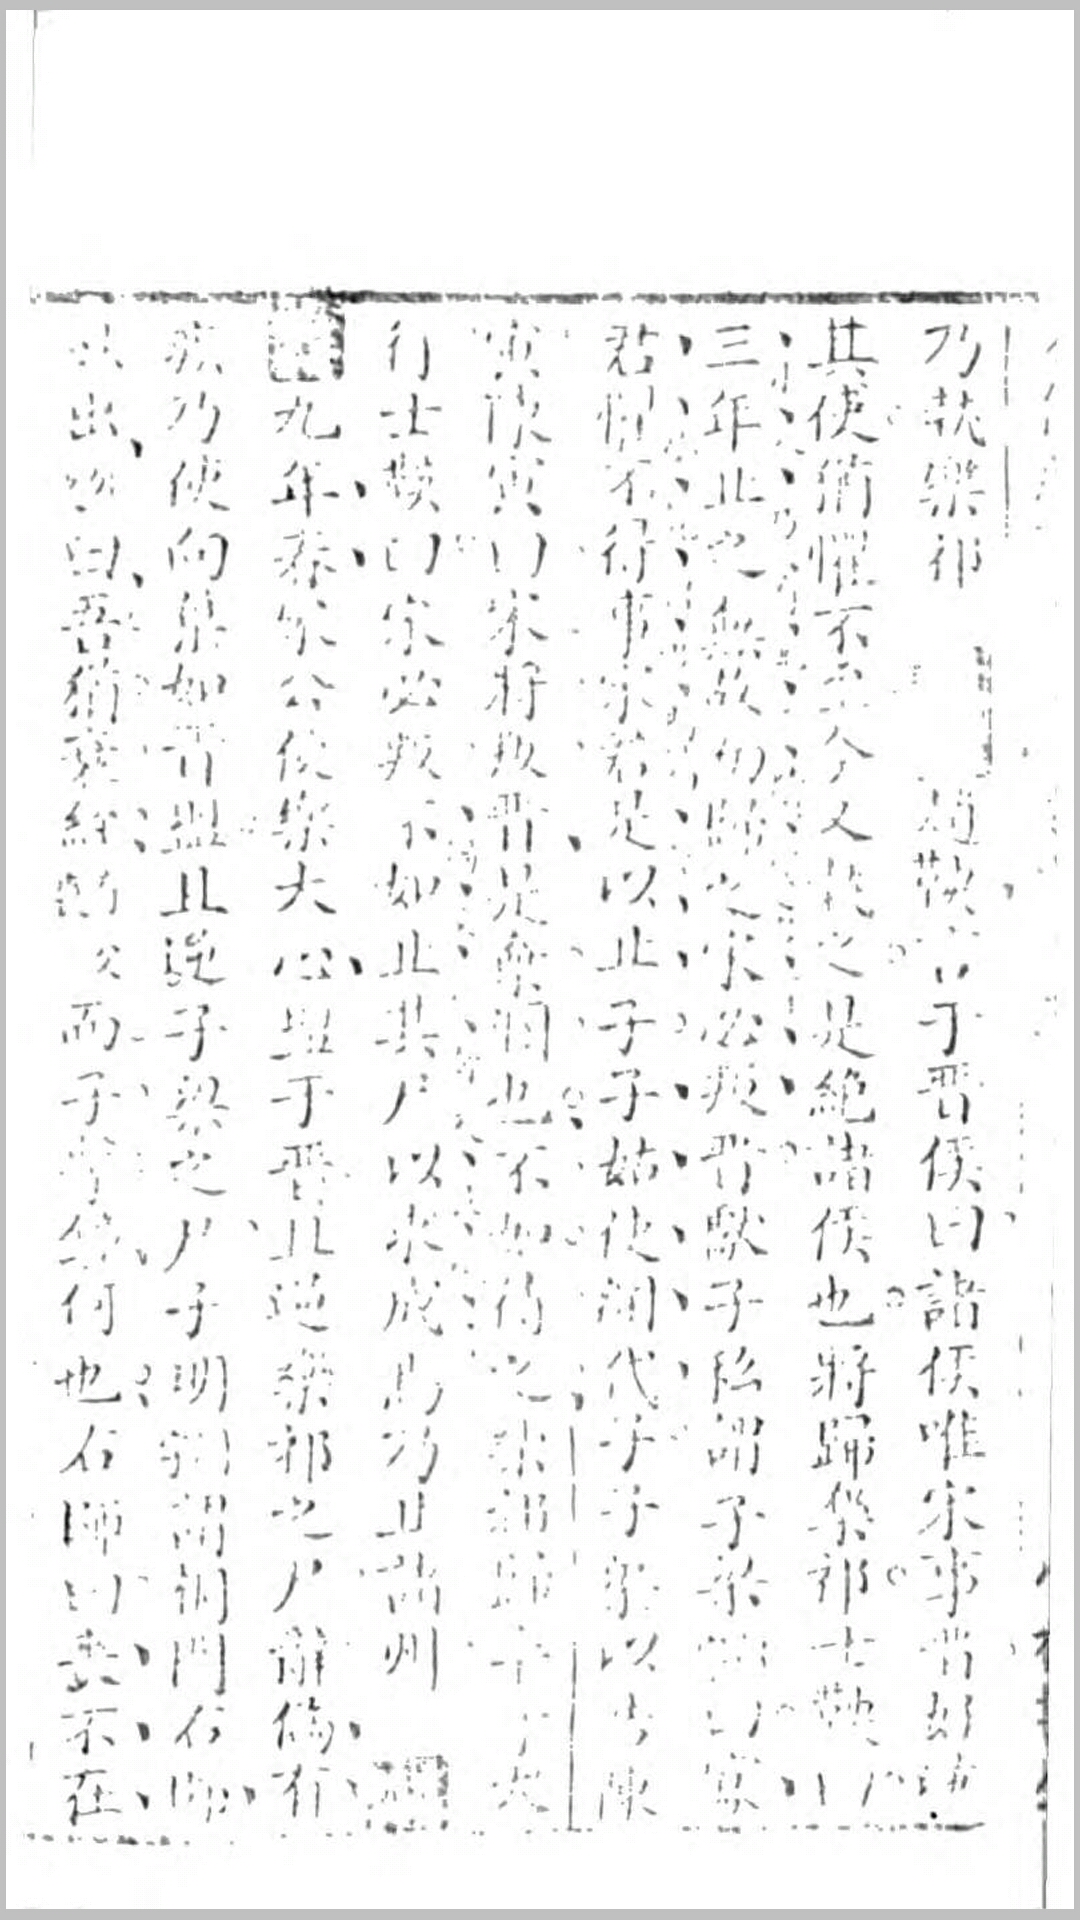 乃執樂祁 趙鞅言于晉侯曰諸侯唯宋事晉好逆
其使猶懼不至今又執之是絕諸侯也將歸樂祁士鞅曰
三年止之無故而歸之宋必叛晉獻子私謂子梁曰寡
君懼不得事宋君是以止子子姑使溷代子子梁以告陳
寅陳寅曰宋將叛晉是棄溷也不如待之樂祁歸卒于大
行士鞅曰宋必叛不如止其尸以求成焉乃止諸州
九年春宋公使樂大心盟于晉且逆樂祁之尸辭偽有
疾乃使向巢如晉盟且逆子梁之尸子明謂桐門右師
出 曰吾猶衰絰 而子擊鐘何也右師曰喪不在